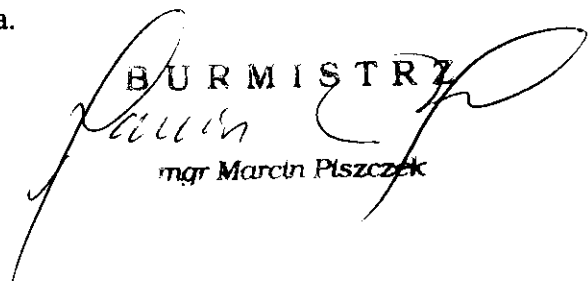 a.
BURMISTRZ
Marcin
mgr Marcin Piszczek